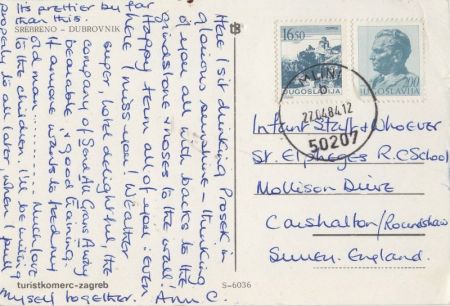 Its prettier by far
than this.
SREBRENO - DUBROVNIK
Here I sit drinking Prosek in
glorious sunshine - thinking
of you all with backs to the
grindstone & noses to the wall!
Happy term all of you: even
here I miss you! Weather
super, hotel delightful, the
company of Send Ill Grans Away
bearable, & good training.
if anyone wants to tread my
old man......... Much love
to the children. I'll be writing
properly to all later when I pull
myself together. Ann C.
turistkomerc-zagreb
S-6036
16,50
JUGOSLAVIJA
2,00
JUGOSLAVIJA
MLINI
b
27.04.84.12
50207
Infant Staff & Whoever
St. Elpheges R.C School
Mollison Drive
Carshalton/Roundshaw
Surrey. England.